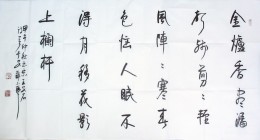 金爐香盡漏
聲殘剪々輕
風陣々寒春
色惱人眠不
得月移花影
上欄杆